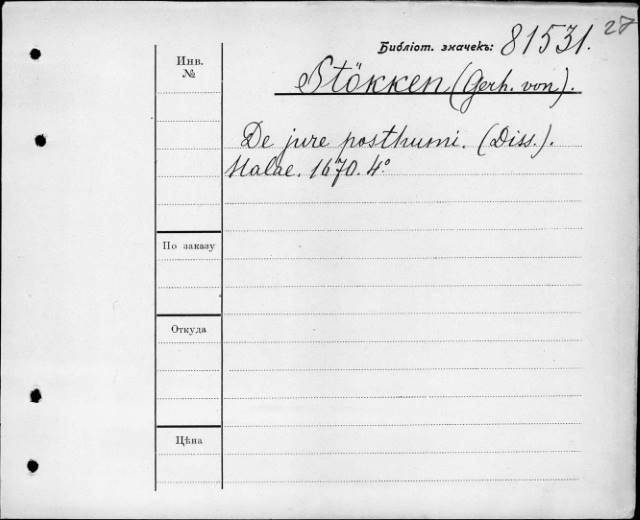 27
Библіот. значекъ: 81531.
Инв.
№
Stökken (Gerh. von).
De jure posthumi. (Diss.).
Halae. 1670. 4°
По заказу
Откуда
Цѣна